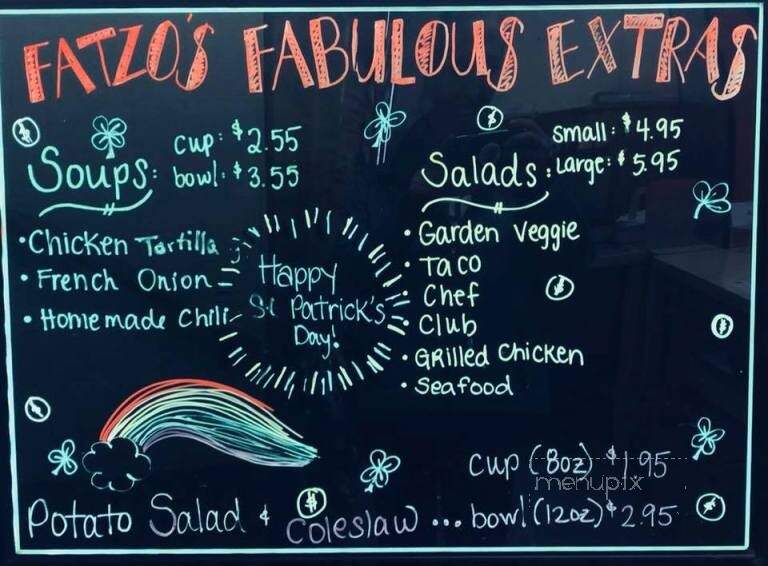 FATZO'S FABULOUS EXTRAS
Soups: cup: $2.55
bowl: $3.55
• Chicken Tortilla
• French Onion
• Homemade Chili
Happy
St Patrick's
Day!
Salads: small: $4.95
Large: $5.95
• Garden Veggie
• Taco
• Chef
• Club
• Grilled Chicken
• Seafood
cup (8oz) $1.95
menupix
Potato Salad & Coleslaw ... bowl (12oz) $2.95